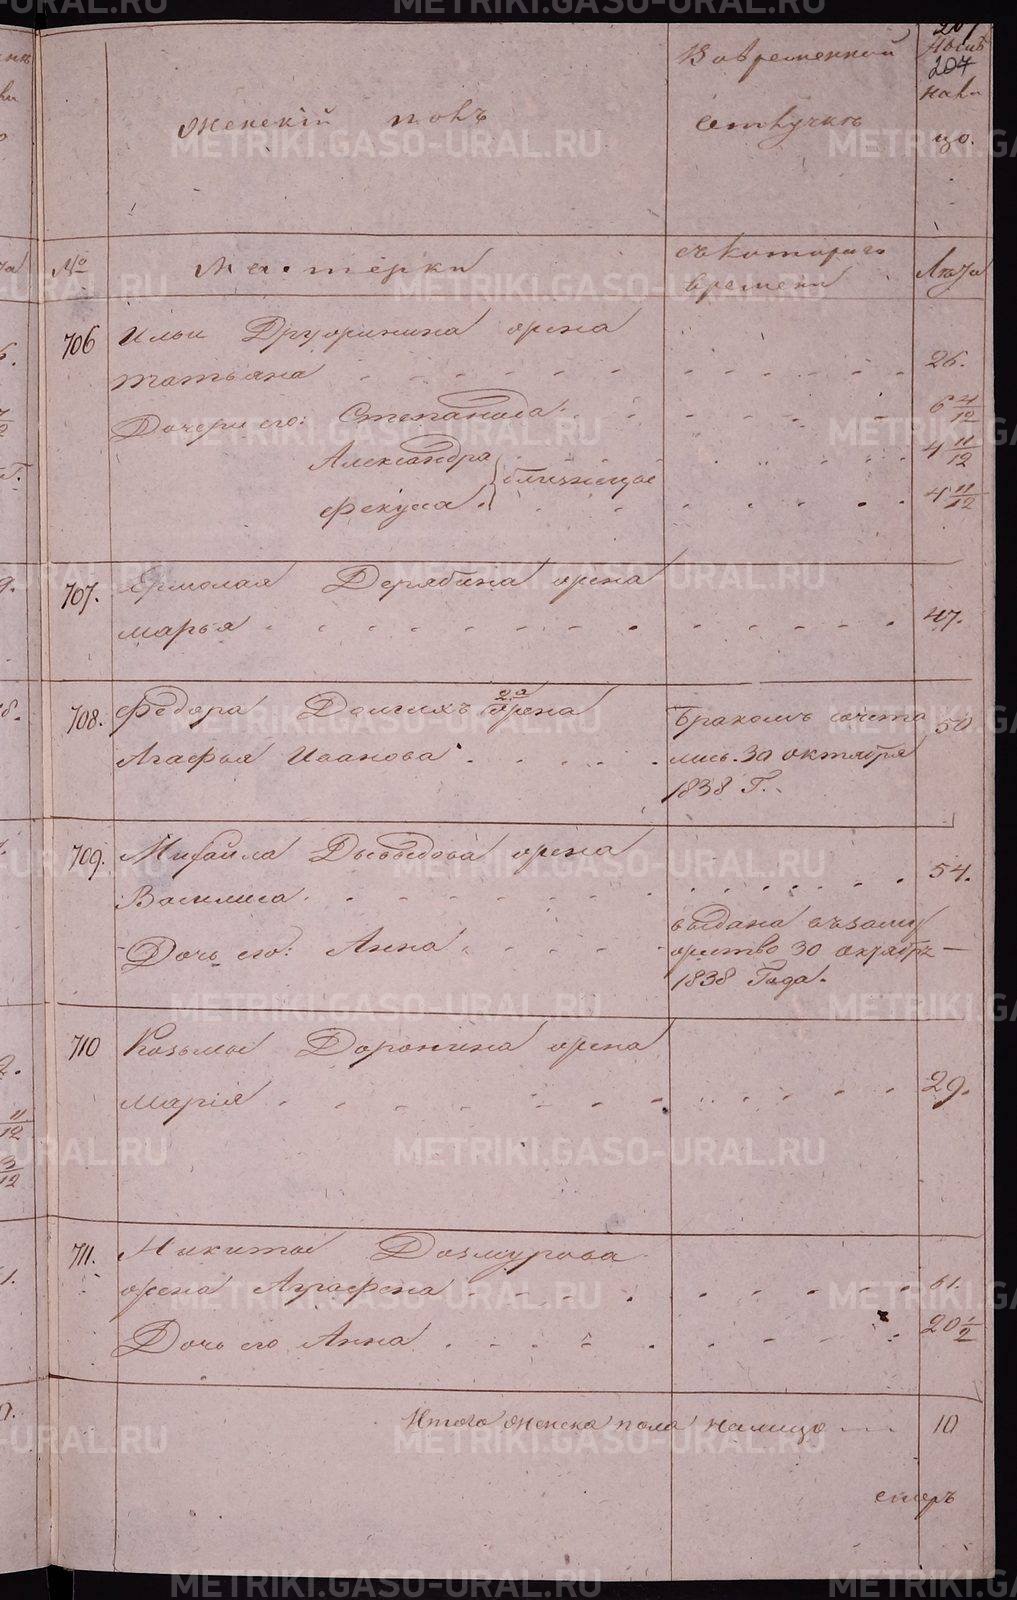 207
Женскій полъ
Во временной
отлучкѣ
Нынѣ
204
нали
цо.
№
Мастерки
съ котораго
времени
Лета
706
Ильи Дружинина жена
Татьяна
26.
Дочери его: Степанида
6 4/12
Александра
4 11/12
близнецы
Фекуса
4 11/12
707.
Ермолая Дерябина жена
Марья
47.
708.
Федора Долгихъ 2я жена
Агафья Иванова
Бракомъ сочета
лись 30 октября
1838 Г.
50
709.
Михайла Давыдова жена
Василиса
54.
Дочь его: Анна
выдана въ заму
жество 30 октябр.
1838 Года.
—
710
Козьмы Доронина жена
Марія
29.
711.
Никиты Дозмурова
жена Аграфена
61.
Дочь его Анна
20 1/2
Итого женска пола налицо
10
METRIKI.GASO-URAL.RU